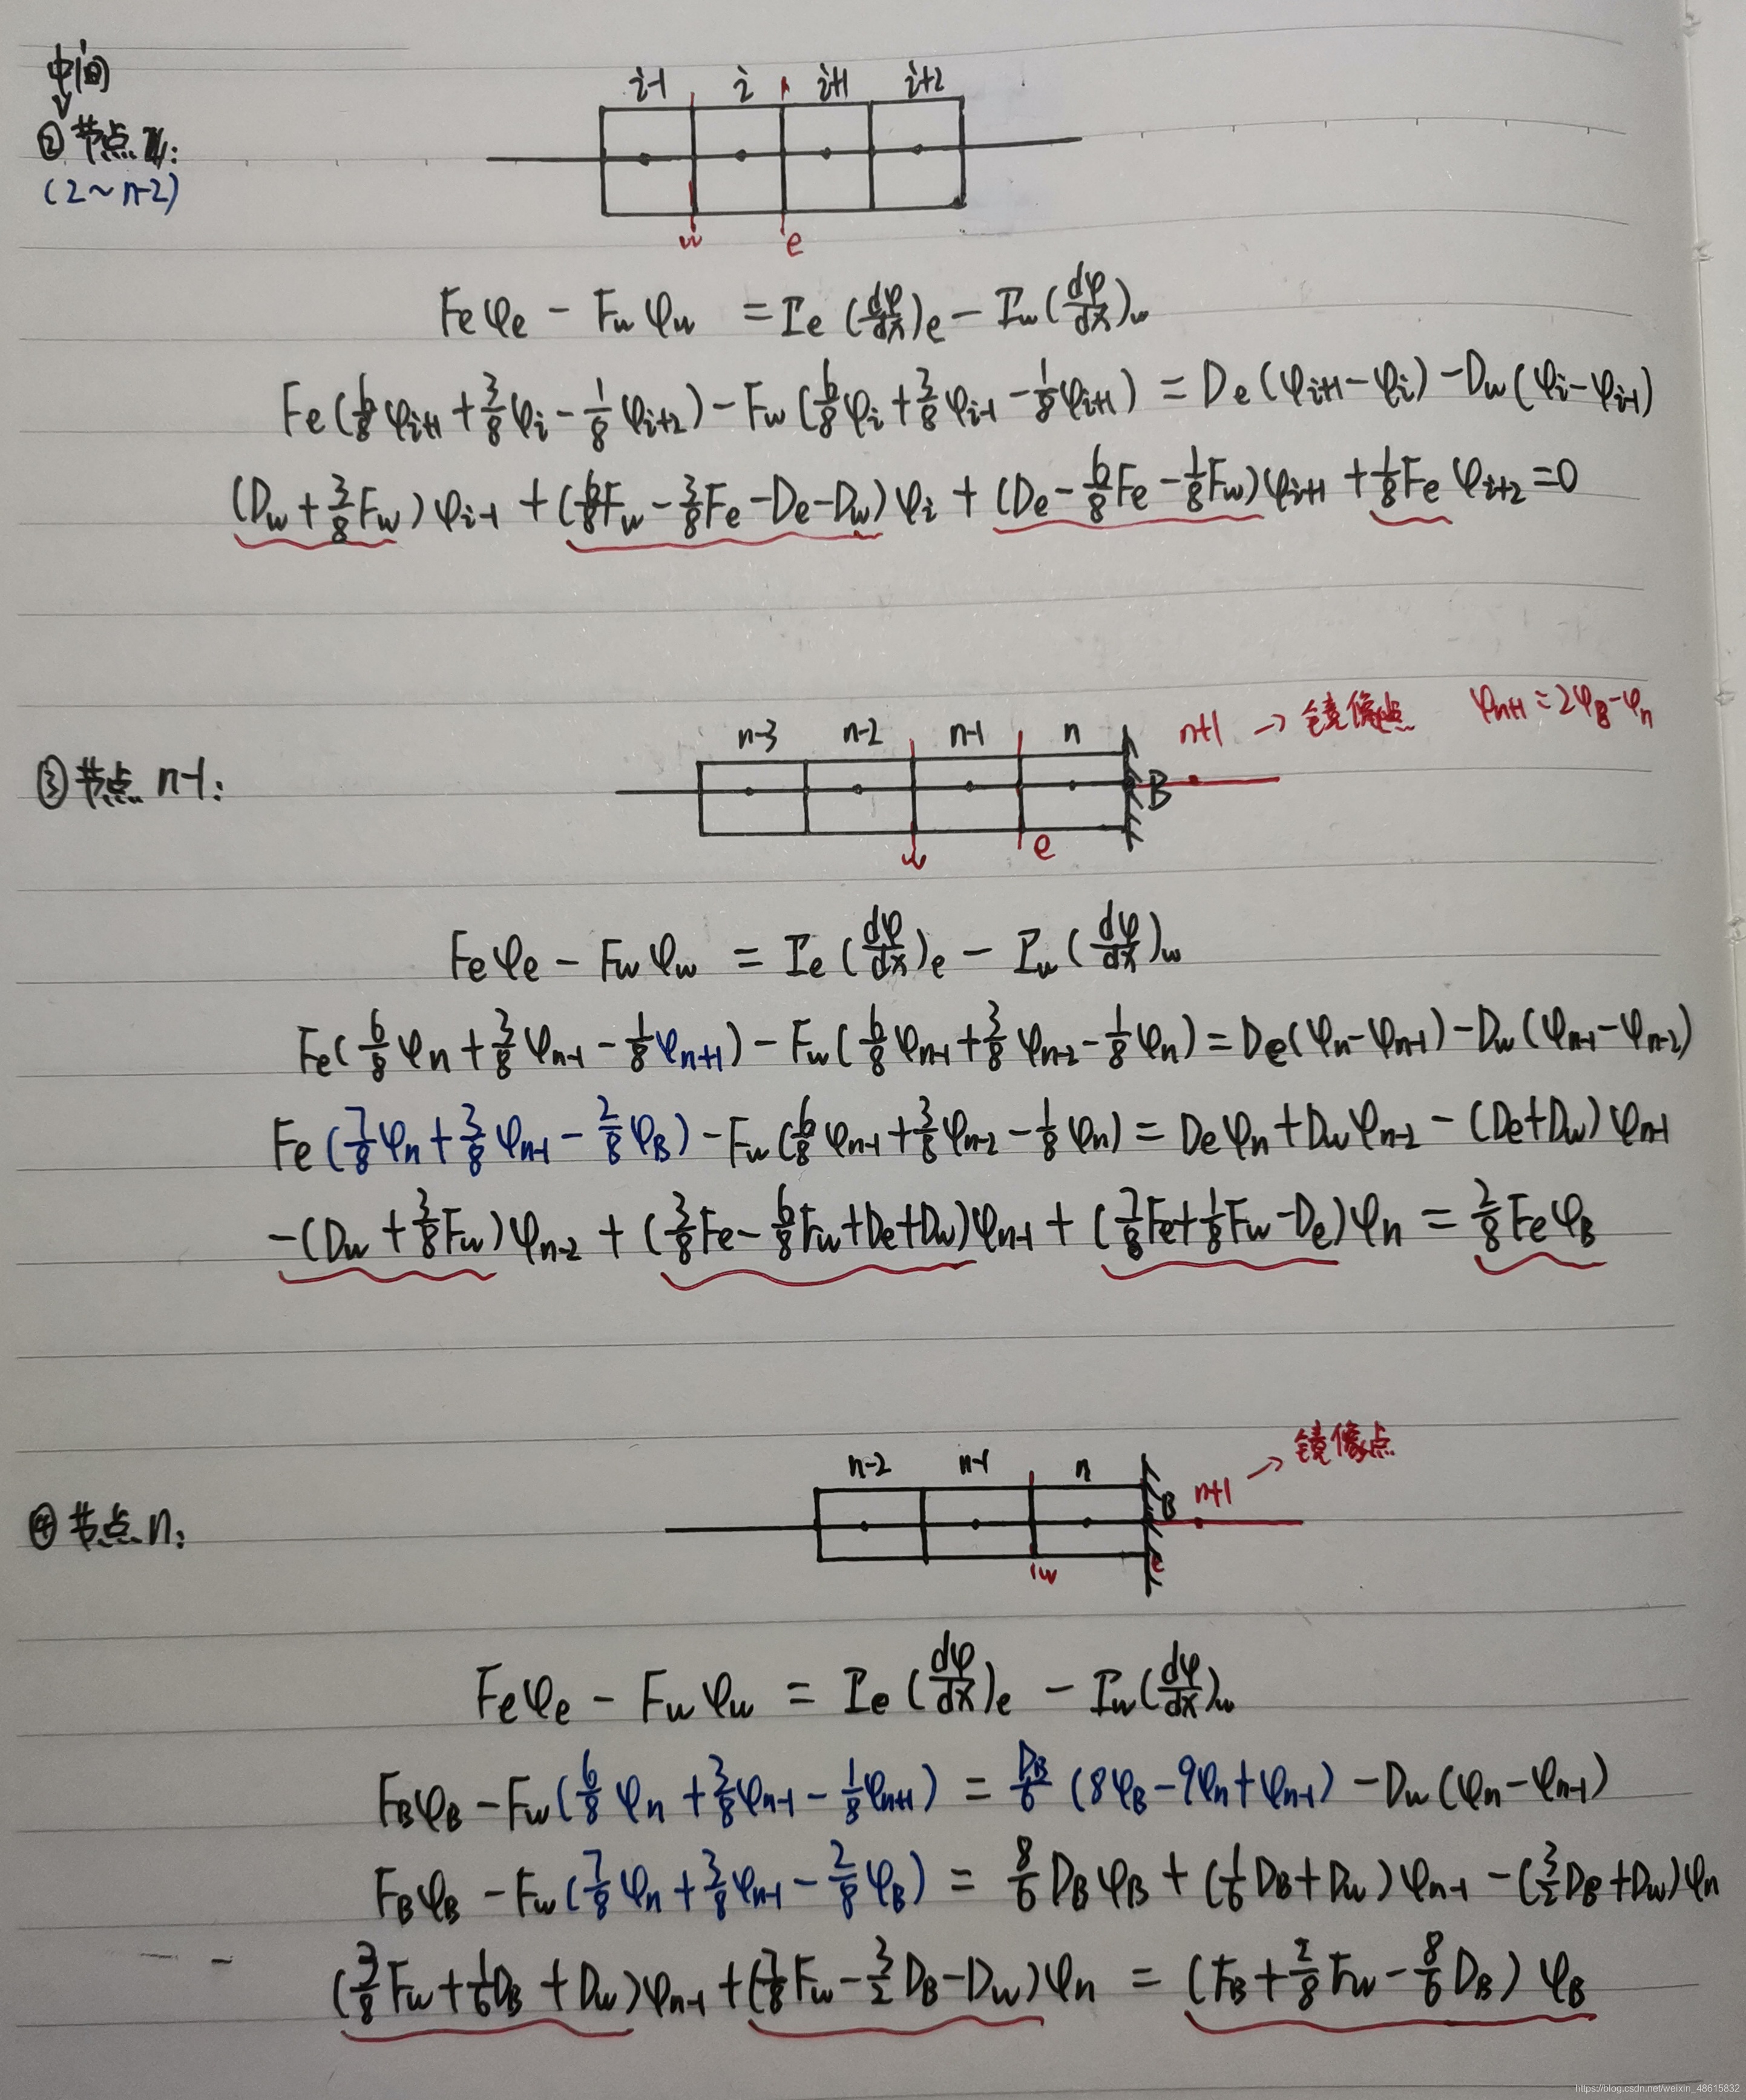 中间
i-1 i i+1 i+2
② 节点:
(2~n-2)
w e
Feφe - Fwφw = Γe(dφ/dx)e - Γw(dφ/dx)w
Fe(6/8 φi+1 + 3/8 φi - 1/8 φi+2) - Fw(6/8 φi + 3/8 φi-1 - 1/8 φi+1) = De(φi+1 - φi) - Dw(φi - φi-1)
(Dw + 3/8 Fw)φi-1 + (6/8 Fw - 3/8 Fe - De - Dw)φi + (De - 6/8 Fe - 1/8 Fw)φi+1 + 1/8 Fe φi+2 = 0
n-3 n-2 n-1 n n+1 → 镜像点 φn+1 = 2φB - φn
③ 节点 n-1:
B
w e
Feφe - Fwφw = Γe(dφ/dx)e - Γw(dφ/dx)w
Fe(6/8 φn + 3/8 φn-1 - 1/8 φn+1) - Fw(6/8 φn-1 + 3/8 φn-2 - 1/8 φn) = De(φn - φn-1) - Dw(φn-1 - φn-2)
Fe(7/8 φn + 3/8 φn-1 - 2/8 φB) - Fw(6/8 φn-1 + 3/8 φn-2 - 1/8 φn) = Deφn + Dwφn-2 - (De + Dw)φn-1
-(Dw + 3/8 Fw)φn-2 + (3/8 Fe - 6/8 Fw + De + Dw)φn-1 + (7/8 Fe + 1/8 Fw - De)φn = 2/8 FeφB
n-2 n-1 n B n+1 → 镜像点
④ 节点 n:
w e
Feφe - Fwφw = Γe(dφ/dx)e - Γw(dφ/dx)w
FBφB - Fw(6/8 φn + 3/8 φn-1 - 1/8 φn+1) = DB/6 (8φB - 9φn + φn-1) - Dw(φn - φn-1)
FBφB - Fw(7/8 φn + 3/8 φn-1 - 2/8 φB) = 8/6 DBφB + (1/6 DB + Dw)φn-1 - (3/2 DB + Dw)φn
(3/8 Fw + 1/6 DB + Dw)φn-1 + (7/8 Fw - 3/2 DB - Dw)φn = (FB + 2/8 Fw - 8/6 DB)φB
https://blog.csdn.net/weixin_48615832